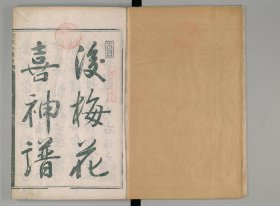 浚梅花
喜神譜